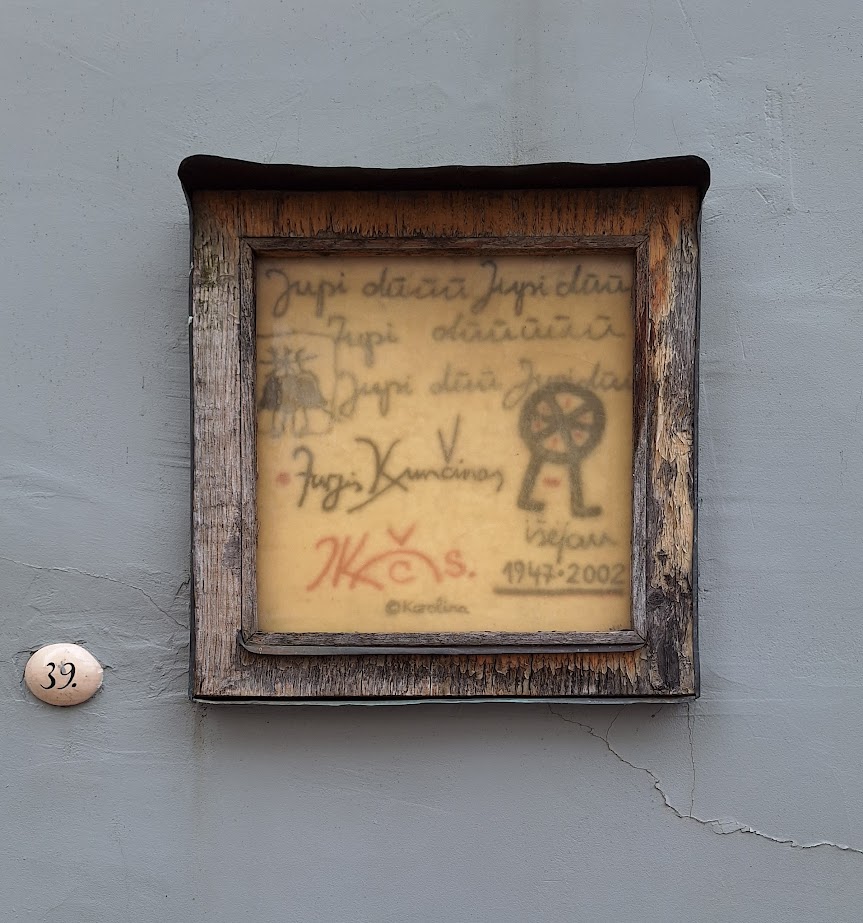 Jupi dūūū Jupi dūūū
Jupi dūūūūūū
Jupi dūū Jupi dūū
Jurgis Kunčinas
išėjau
JKčs.
1947·2002
©Karolina
39.